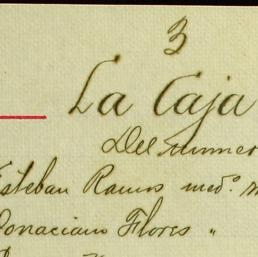 3
La Caja
Del numer
Esteban Ramos med.º m
Donaciano Flores "